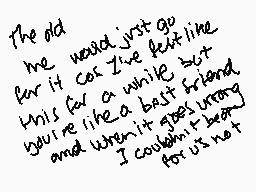 The old
me would just go
for it cos I've felt like
this for a while but
you're like a best friend
and when it goes wrong
I couldn't bear
for us not